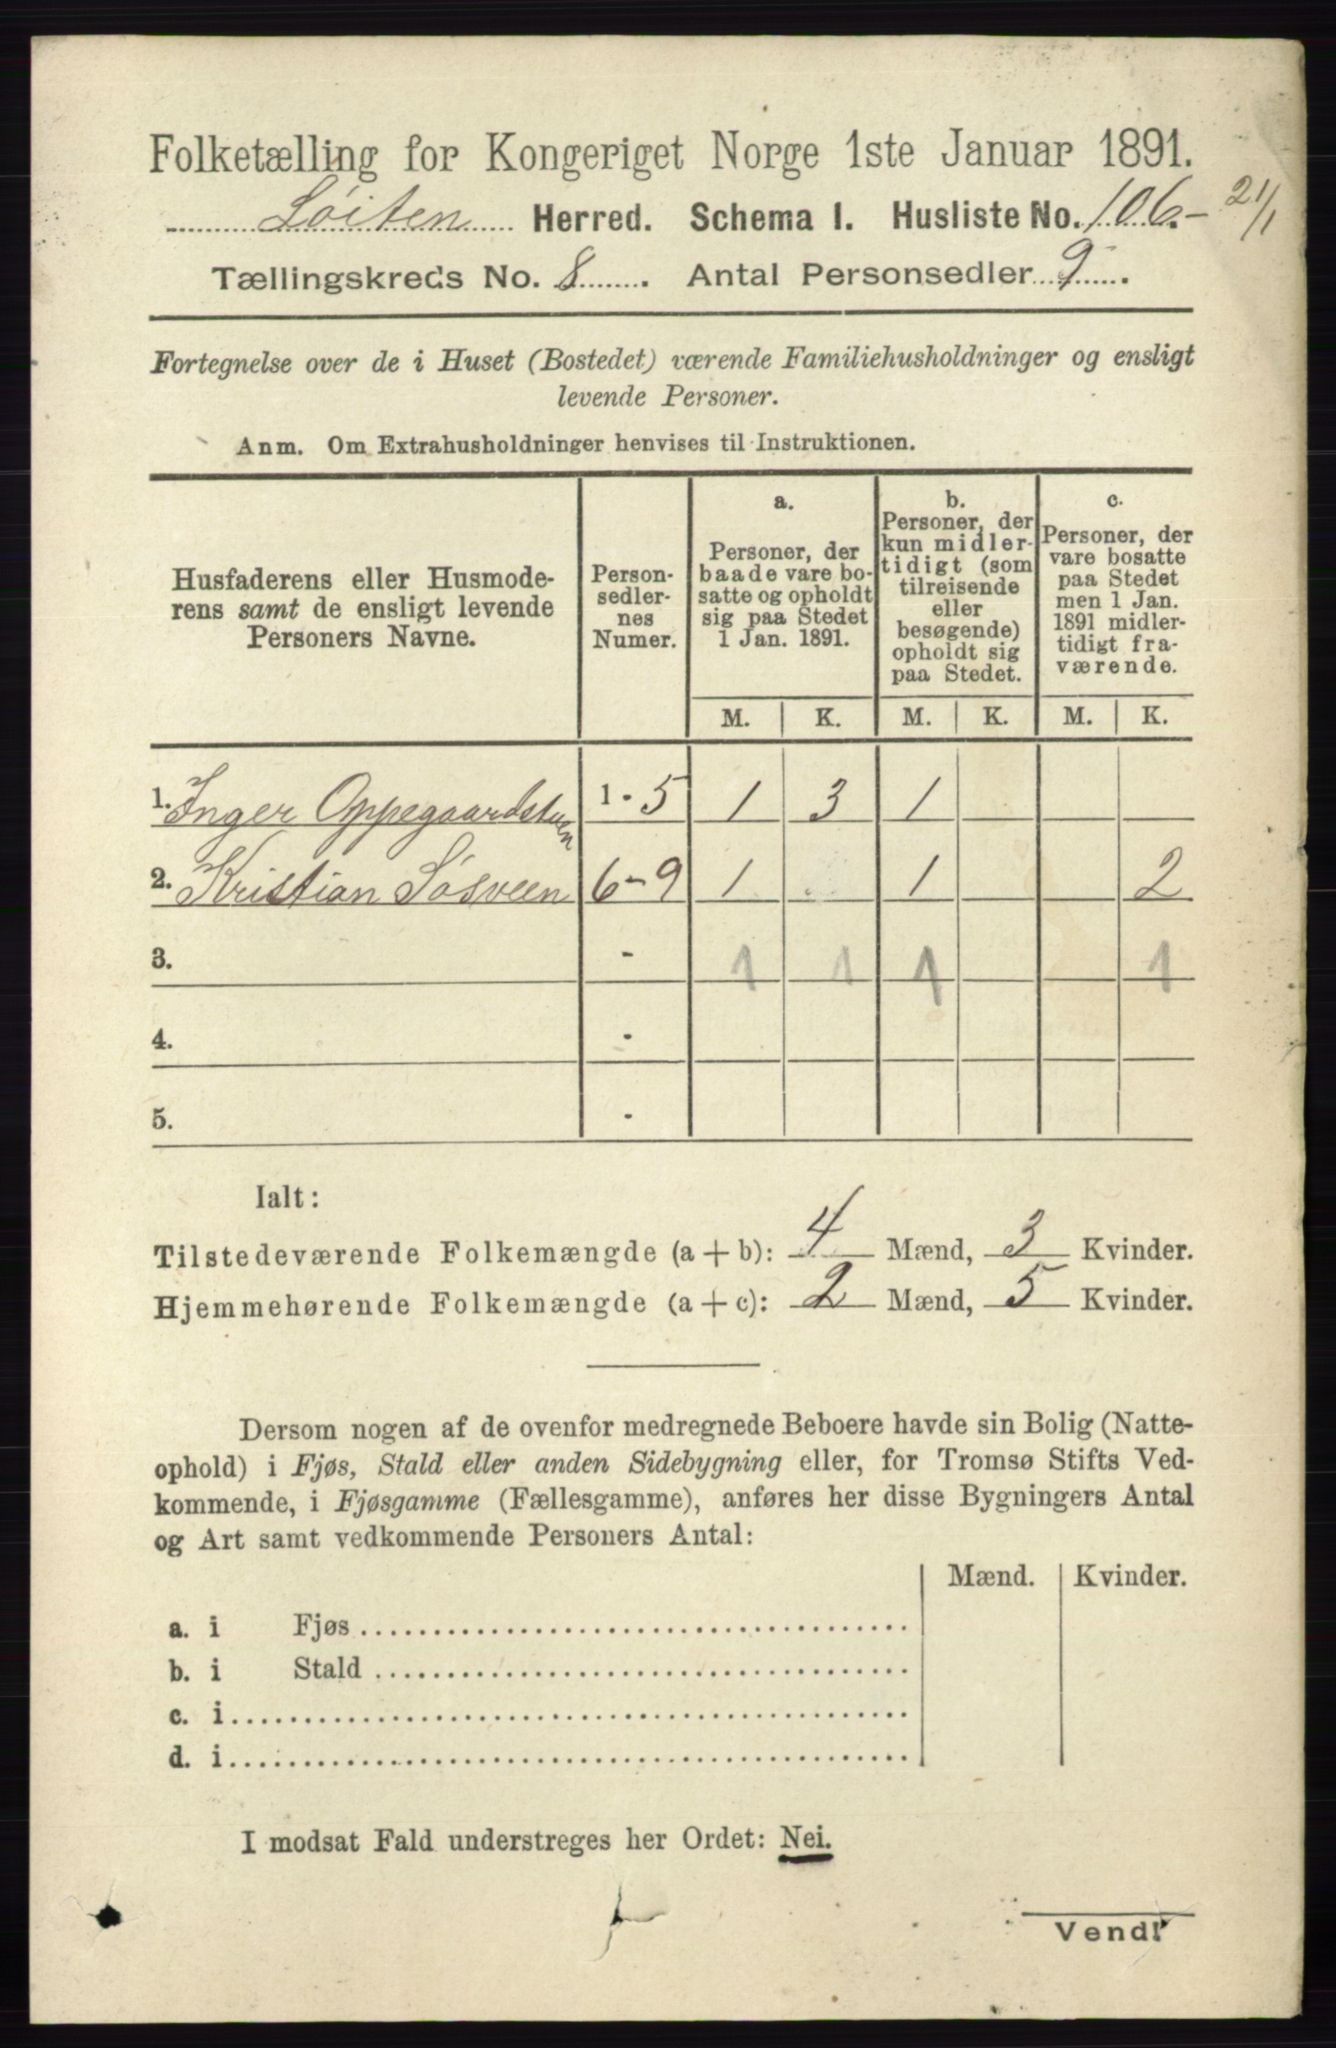 Folketælling for Kongeriget Norge 1ste Januar 1891.
Løiten Herred. Schema I. Husliste No. 106. - 2 1/1
Tællingskreds No. 8. Antal Personsedler 9.
Fortegnelse over de i Huset (Bostedet) værende Familiehusholdninger og ensligt
levende Personer.
Anm. Om Extrahusholdninger henvises til Instruktionen.
Husfaderens eller Husmode-
rens samt de ensligt levende
Personers Navne.
Person-
sedler-
nes
Numer.
a.
Personer, der
baade vare bo-
satte og opholdt
sig paa Stedet
1 Jan. 1891.
b.
Personer, der
kun midler-
tidigt (som
tilreisende
eller
besøgende)
opholdt sig
paa Stedet.
c.
Personer, der
vare bosatte
paa Stedet
men 1 Jan.
1891 midler-
tidigt fra-
værende.
M. K. M. K. M. K.
1. Inger Oppegaardstuen 1 - 5 1 3 1
2. Kristian Løsveen 6 - 9 1 1 2
3. - 1 1 1 1
4. -
5. -
Ialt:
Tilstedeværende Folkemængde (a + b): 4 Mænd, 3 Kvinder.
Hjemmehørende Folkemængde (a + c): 2 Mænd, 5 Kvinder.
Dersom nogen af de ovenfor medregnede Beboere havde sin Bolig (Natte-
ophold) i Fjøs, Stald eller anden Sidebygning eller, for Tromsø Stifts Ved-
kommende, i Fjøsgamme (Fællesgamme), anføres her disse Bygningers Antal
og Art samt vedkommende Personers Antal:
Mænd. Kvinder.
a. i Fjøs
b. i Stald
c. i
d. i
I modsat Fald understreges her Ordet: Nei.
Vend!